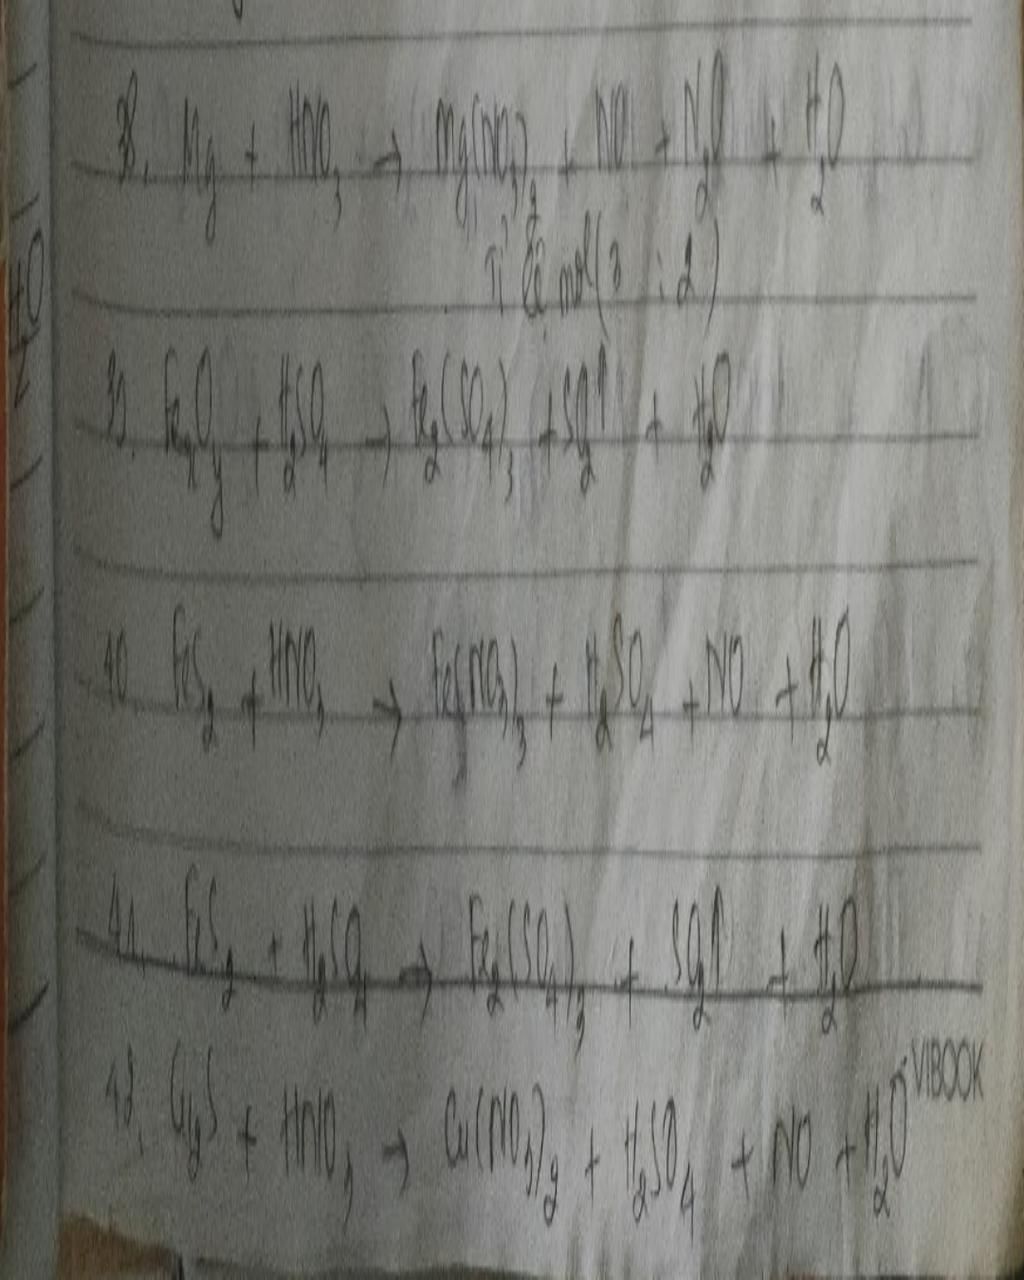 38. Mg + HNO3 → Mg(NO3)2 + NO + N2O + H2O
Tỉ lệ mol (3 : 2)
39. FexOy + H2SO4 → Fe2(SO4)3 + SO2↑ + H2O
40. FeS2 + HNO3 → Fe(NO3)3 + H2SO4 + NO + H2O
41. FeS2 + H2SO4 → Fe2(SO4)3 + SO2↑ + H2O
VIBOOK
42. Cu2S + HNO3 → Cu(NO3)2 + H2SO4 + NO + H2O